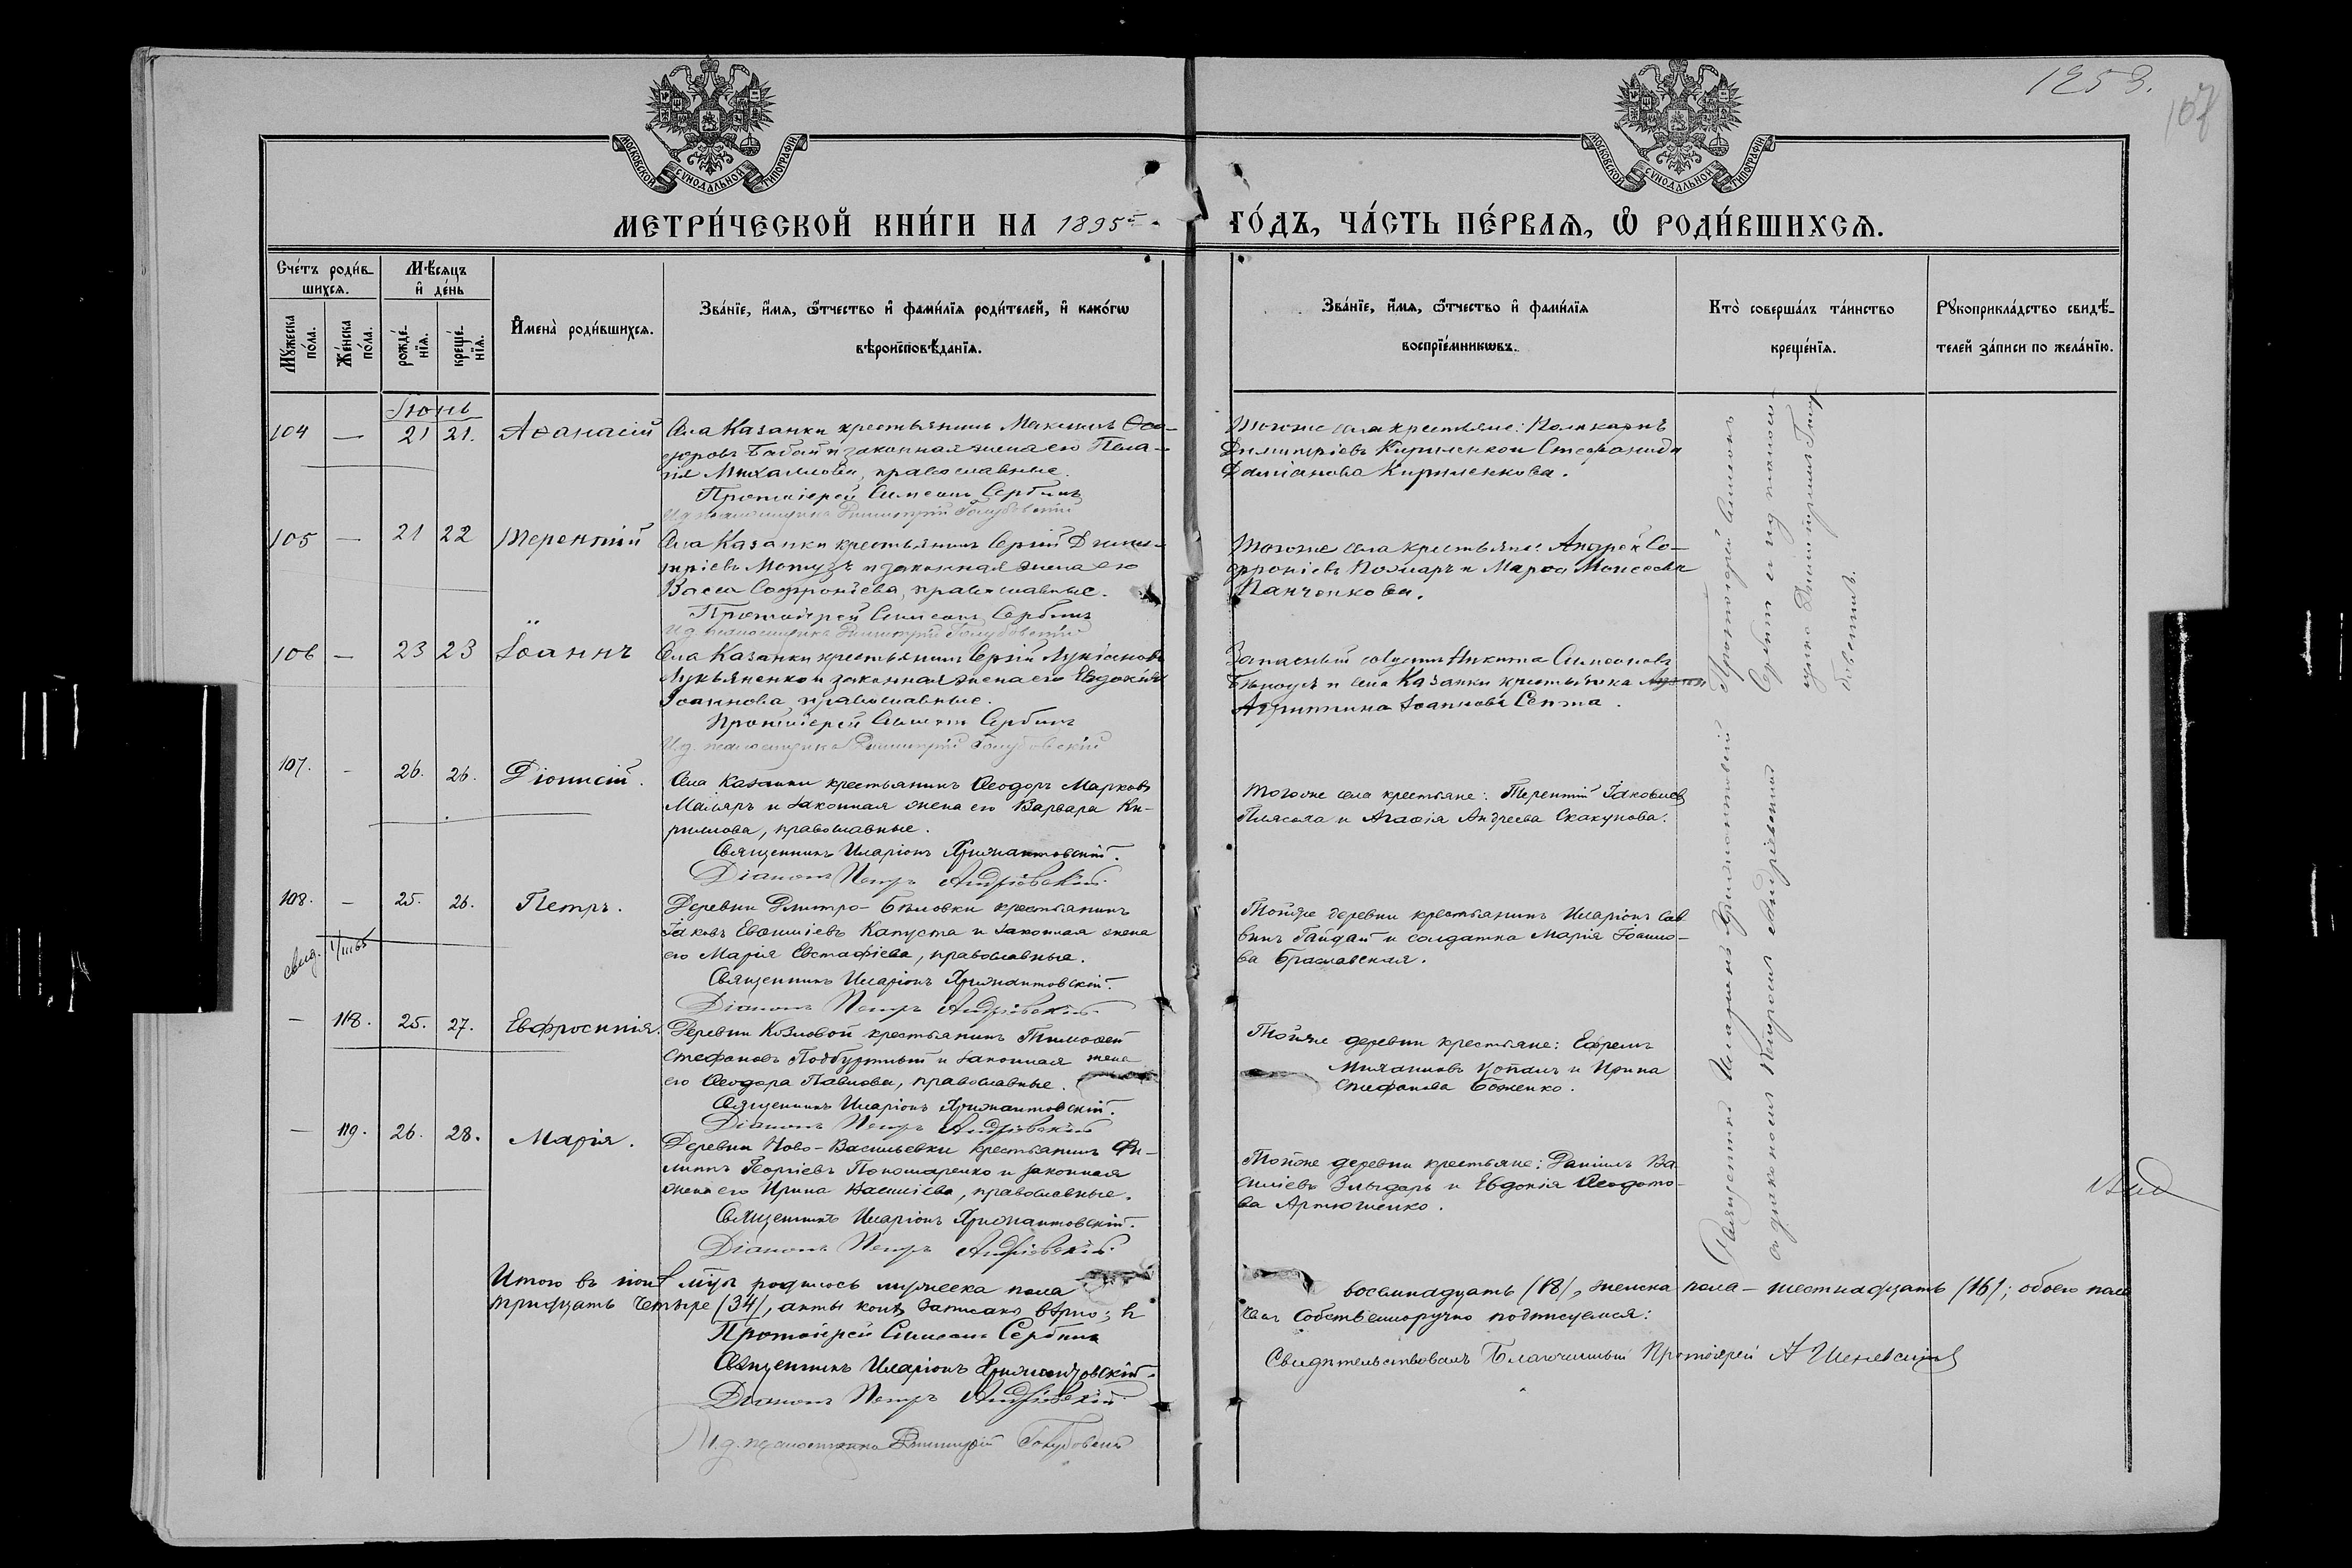 1253.
107
МОСКОВСКОЙ СѴНОДАЛЬНОЙ ТИПОГРАФІИ
МОСКОВСКОЙ СѴНОДАЛЬНОЙ ТИПОГРАФІИ
МЕТРИ́ЧЕСКОЙ КНИ́ГИ НА 1895й ГО́ДЪ, ЧА́СТЬ ПЕ́РВАѦ, Ѡ҆ РОДИ́ВШИХСѦ.
Сче́тъ роди́в-
шихсѧ.
Мꙋ́жеска по́ла.
Же́нска по́ла.
Мѣ́сѧцъ
и҆ де́нь
рожде́нїѧ.
креще́нїѧ.
И҆мена̀ роди́вшихсѧ.
Зва́нїе, и҆́мѧ, ѻ҆́тчество и҆ фами́лїѧ роди́телей, и҆ како́гѡ
вѣроисповѣ́данїѧ.
Зва́нїе, и҆́мѧ, ѻ҆́тчество и҆ фами́лїѧ
воспрїе́мникѡвъ.
Кто̀ соверша́лъ та́инство
креще́нїѧ.
Рꙋкоприкла́дство свидѣ́-
телей за́писи по жела́нїю.
Іюнь
104 — 21 21. Аѳанасій
Села Казанки крестьянинъ Максимъ Ѳео-
доровъ Бабай и законная жена его Пела-
гія Михаилова, православные.
Протоіерей Симеонъ Сербинъ
И.д. псаломщика Димитрій Голубовскій
Тогоже села крестьяне: Поликарпъ
Димитріевъ Кириленко и Стефанида
Даміанова Кириленкова.
105 — 21 22 Терентій
Села Казанки крестьянинъ Сергій Дими-
тріевъ Мотузъ и законная жена его
Васса Софроніева, православные.
Протоіерей Симеонъ Сербинъ
И.д. псаломщика Димитрій Голубовскій
Тогоже села крестьяне: Андрей Со-
фроніевъ и Марѳа Моисеева
Панченкова.
106 — 23 23 Іоаннъ
Села Казанки крестьянинъ Сергій Лукіановъ
Лукьяненко и законная жена его Евдокія
Іоаннова православные.
Протоіерей Симеонъ Сербинъ
И.д. псаломщика Димитрій Голубовскій
Запасный Никита Симеоновъ
и села Казанки крестьянка
Агриппина Іоаннова
107. - 26. 26. Діонисій.
Села Казанки крестьянинъ Ѳеодоръ Марковъ
Маляръ и законная жена его Варвара Ки-
риллова, православные.
Священникъ Иларіонъ Хрисанѳовскій.
Діаконъ Петръ Андріевскій.
Тогоже села крестьяне: Терентій Іаковлевъ
и Агаѳія Андреева Скакунова.
108. - 25. 26. Петръ.
свид.
Деревни Дмитро-Бѣловки крестьянинъ
Іаковъ Евѳиміевъ Капуста и законная жена
его Марія Евстафіева, православные.
Священникъ Иларіонъ Хрисанѳовскій.
Діаконъ Петръ Андріевскій.
Тойже деревни крестьянинъ Иларіонъ Сав-
винъ Гайдай и солдатка Марія Іоанно-
ва Браславская.
— 118. 25. 27. Евфросинія.
Деревни Козловой крестьянинъ Тимоѳей
Стефановъ Подбуртный и законная жена
его Ѳеодора Павлова, православные.
Священникъ Иларіонъ Хрисанѳовскій.
Діаконъ Петръ Андріевскій
Тойже деревни крестьяне: Ефремъ
и Ирина
Стефанова Боженко.
— 119. 26. 28. Марія.
Деревни Ново-Васильевки крестьянинъ Фи-
липпъ Георгіевъ Пономаренко и законная
жена его Ирина Василіева, православные.
Священникъ Иларіонъ Хрисанѳовскій.
Діаконъ Петръ Андріевскій.
Тойже деревни крестьяне: Даніилъ Ва-
силіевъ и Евдокія Ѳеодото-
ва Артюшенко.
Протоіерей Симеонъ
Сербинъ и и.д. псалом-
щика Димитрій Голу-
бовскій.
Священникъ Иларіонъ Хрисанѳовскій
съ діакономъ Петромъ Андріевскимъ
Итого въ іюнѣ мцѣ родилось мужеска пола восемнадцать /18/, женска пола - шестнадцать /16/; обоего пола
тридцать четыре /34/, акты коихъ записано вѣрно; въ чемъ собственноручно подписуемся:
Протоіерей Симеонъ Сербинъ
Священникъ Иларіонъ Хрисанѳовскій.
Діаконъ Петръ Андріевскій
И.д. псаломщика Димитрій Голубовскій
Свидѣтельствовалъ Благочинный Протоіерей А